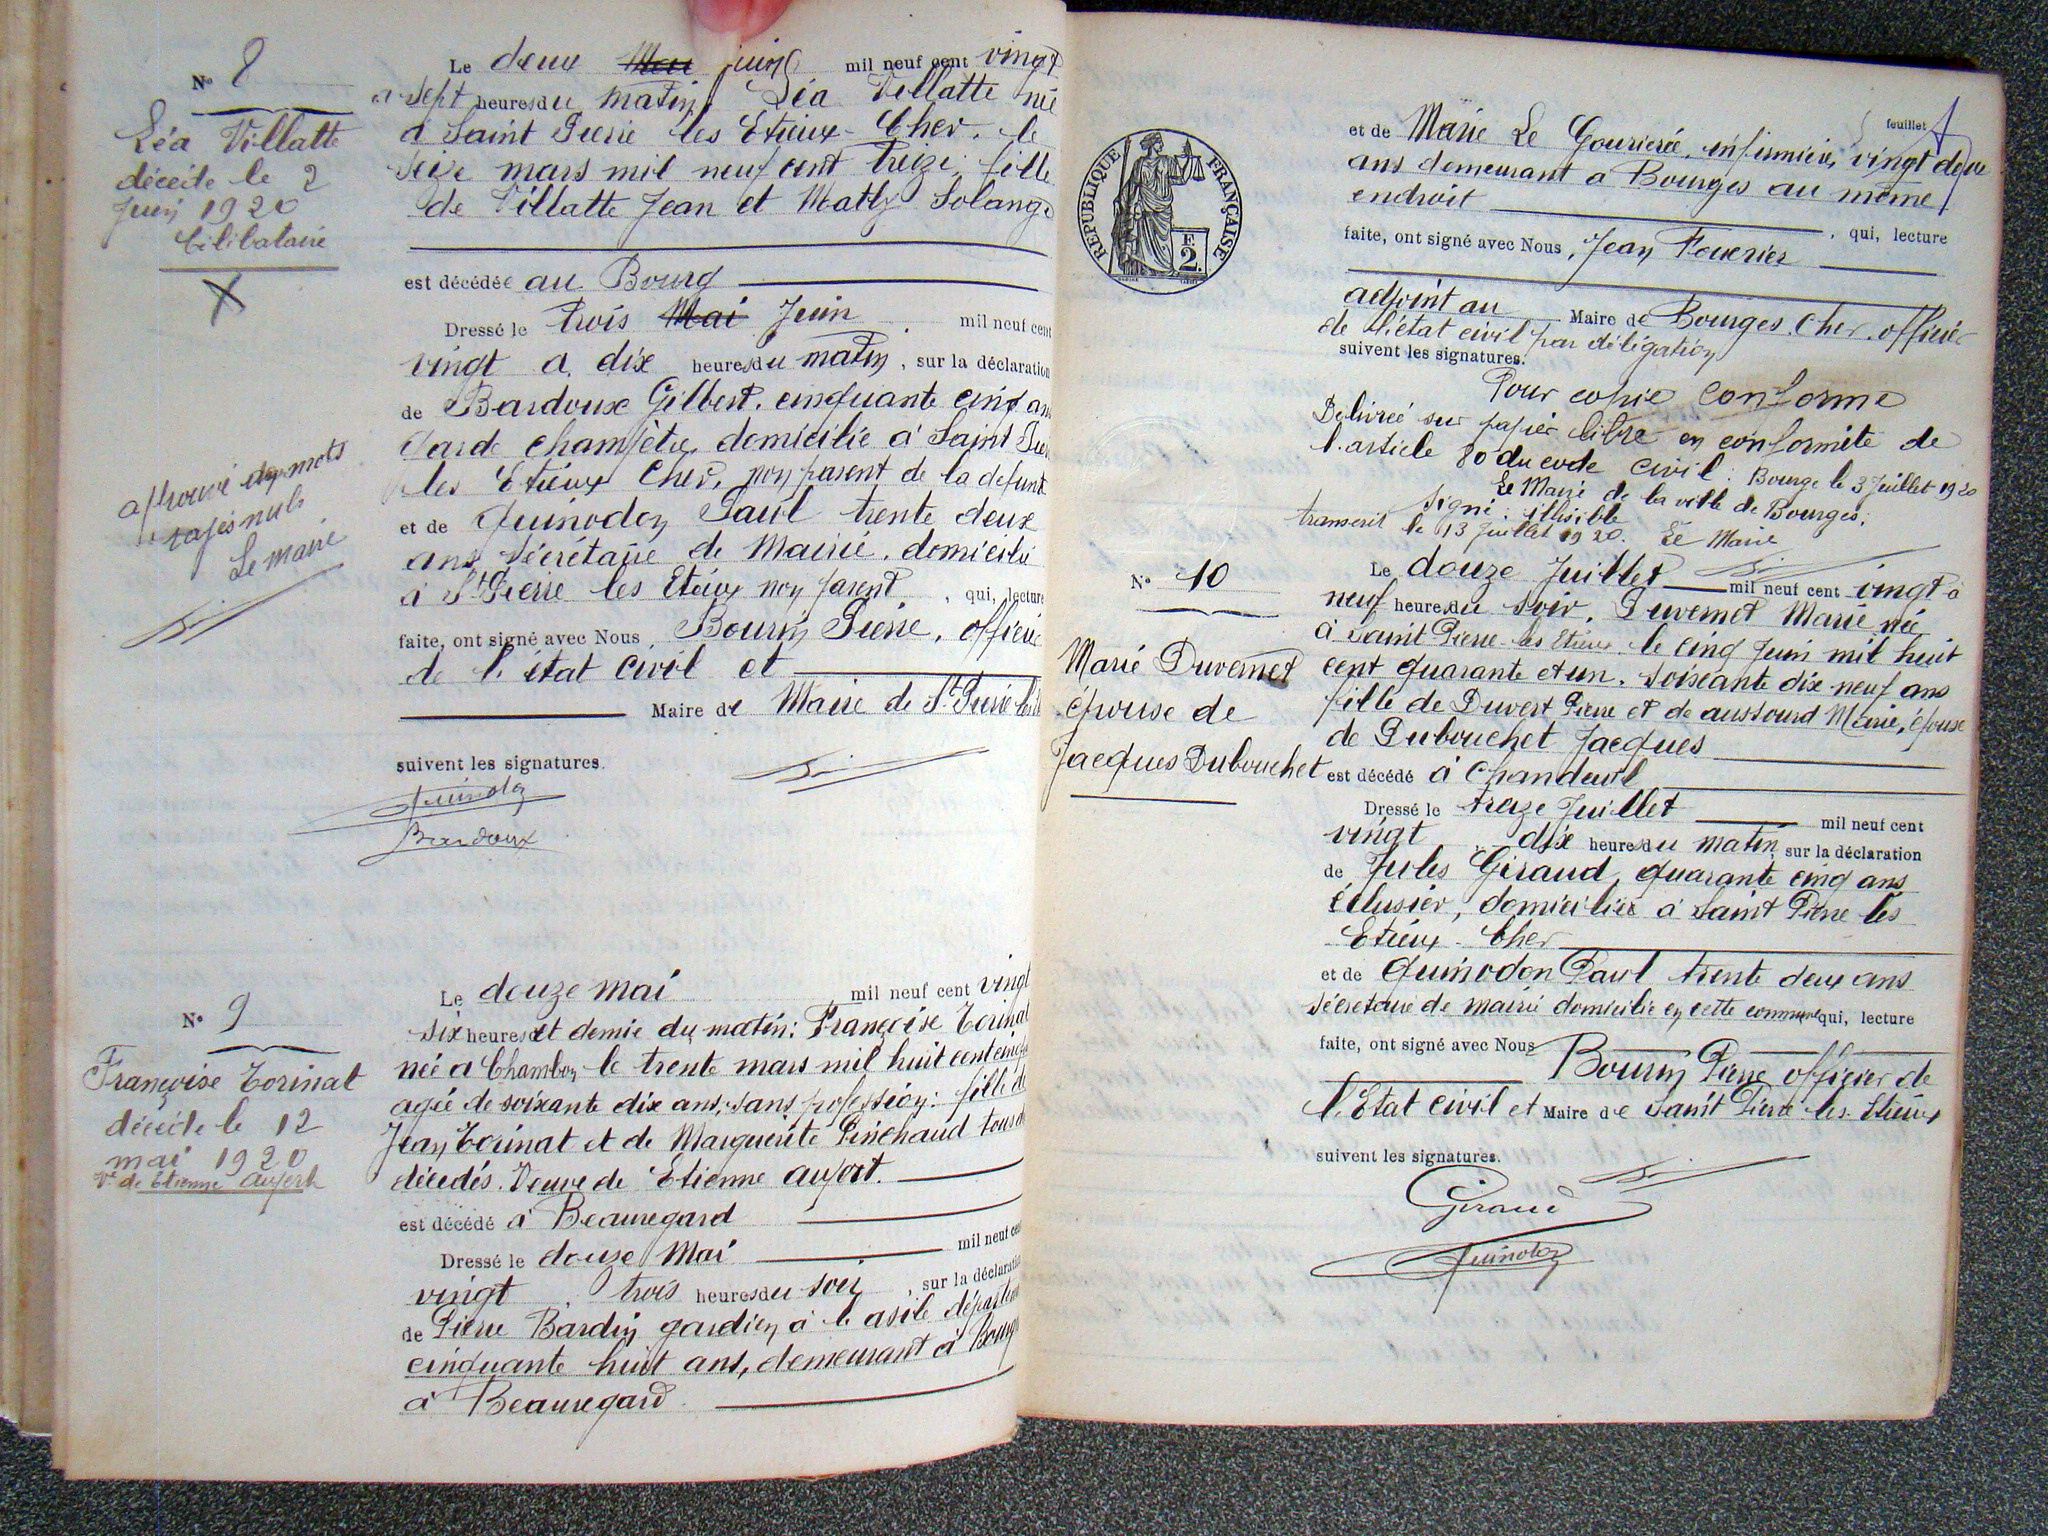 N° 8
Léa Villatte
décéde le 2
Juin 1920
Célibataire
Le deux Mai juin mil neuf cent vingt
a sept heures du matin, Léa Villatte née
à Saint Pierre les Etieux Cher, le
seize mars mil neuf cent treize, fille
de Villatte Jean et Matly Solange
est décédée au Bourg
Dressé le trois Mai Juin mil neuf cent
vingt a dix heures du matin, sur la déclaration
de Bardoux Gilbert, cinquante cinq ans
Garde champêtre, domicilié à Saint Pier
les Etieux Cher, non parent de la defunte
et de Quinodon Paul trente deux
ans Sécrétaire de Mairie, domicilié
à St Pierre les Etieux non parent, qui, lecture
faite, ont signé avec Nous Bourin Pierre, officier
de l'état civil et
Maire de Maire de St Pierre les
suivent les signatures.
Quinodon
Bardoux
approuvé deux mots
rayés nuls
Le Maire
N° 9
Françoise Torinat
décéde le 12
mai 1920
Ve de Etienne Aufort
Le douze mai mil neuf cent vingt
six heures et demie du matin: Françoise Torinat
née à Chambon le trente mars mil huit cent cinqu
agée de soixante dix ans, sans profession: fille de
Jean Torinat et de Marguerite Pinchaud tous de
décédés. Veuve de Etienne Aufort.
est décédé à Beauregard
Dressé le douze Mai mil neuf cent
vingt, trois heures du soir, sur la déclaration
de Pierre Bardin gardien à l'asile départem
cinquante huit ans, demeurant à Bourges
à Beauregard
feuillet
RÉPUBLIQUE FRANÇAISE
F. 2.
et de Marie Le Gourierée, infirmière, vingt deux
ans demeurant a Bourges au même
endroit
faite, ont signé avec Nous, Jean Fouerier, qui, lecture
adjoint au Maire de Bourges. Cher. officier
de l'état civil par délégation
suivent les signatures.
Pour copie conforme
Délivrée sur papier libre en conformité de
l'article 80 du code civil: Bourge le 3 Juillet 1920
Le Maire de la ville de Bourges;
signé: illisible
transcrit le 13 Juillet 1920. Le Maire
N° 10
Marie Duvernet
épouse de
Jacques Dubouchet
Le douze Juillet mil neuf cent vingt à
neuf heures du soir, Duvernet Marie née
à Saint Pierre les Etieux le cinq Juin mil huit
cent quarante et un. soixante dix neuf ans
fille de Duvert Pierre et de aussourd Marie, épouse
de Dubouchet Jacques
est décédé à Chandeuil
Dressé le treize Juillet mil neuf cent
vingt dix heures du matin, sur la déclaration
de Jules Giraud, quarante cinq ans
éclusier, domicilié à Saint Pierre les
Etieux. Cher
et de Quinodon Paul trente deux ans
sécretaire de mairie domicilié en cette commune qui, lecture
faite, ont signé avec Nous Bourin Pierre officier de
l'Etat civil et Maire de Saint Pierre les Etieux
suivent les signatures.
Giraud
Quinodon